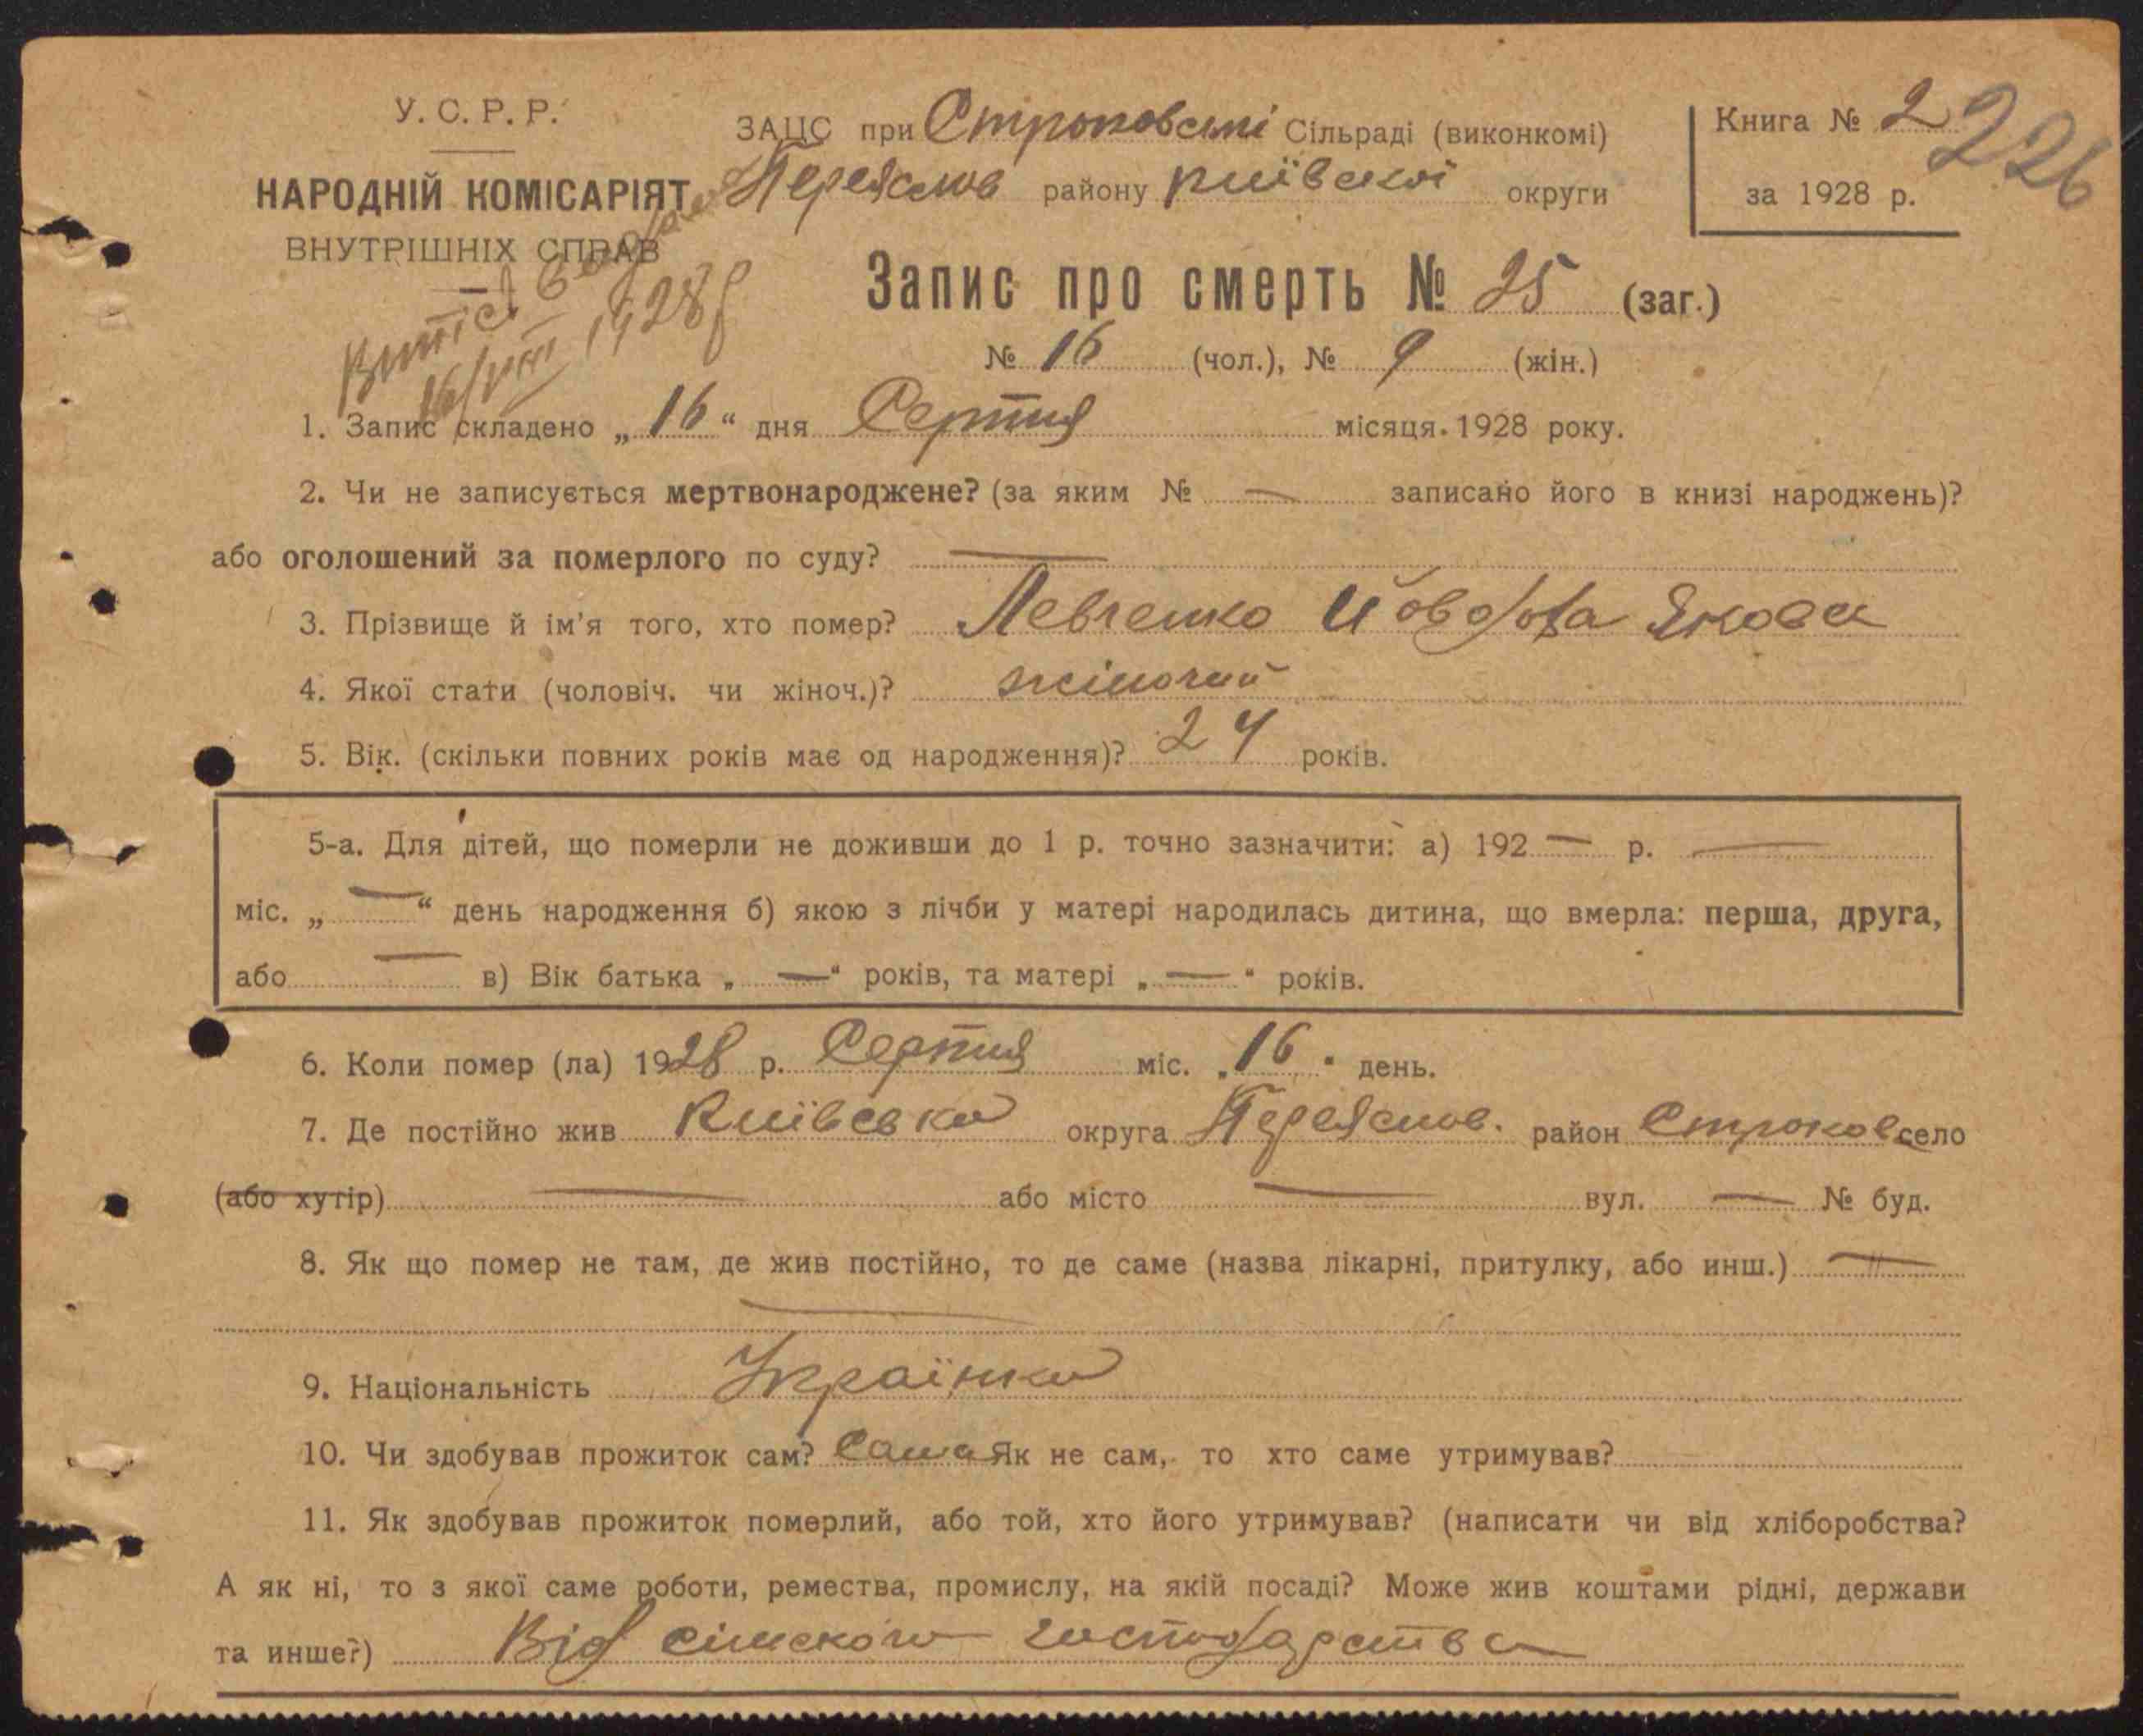 У. С. Р. Р.
НАРОДНІЙ КОМІСАРІЯТ
ВНУТРІШНІХ СПРАВ
Витяг видано
16/VIII 1928 р
ЗАЦС при Строковській Сільраді (виконкомі)
Переяслов району Київської округи
Книга № 2
за 1928 р.
226
Запис про смерть № 25 (заг.)
№ 16 (чол.), № 9 (жін.)
1. Запис складено „ 16 “ дня Серпня місяця 1928 року.
2. Чи не записується мертвонароджене? (за яким № — записано його в книзі народжень)?
або оголошений за померлого по суду? —
3. Прізвище й ім'я того, хто помер? Левченко Йовдоха Якова
4. Якої стати (чоловіч. чи жіноч.)? жіночий
5. Вік. (скільки повних років має од народження)? 24 років.
5-а. Для дітей, що померли не доживши до 1 р. точно зазначити: а) 192 — р. —
міс. „ — “ день народження б) якою з лічби у матері народилась дитина, що вмерла: перша, друга,
або — в) Вік батька „ — “ років, та матері „ — “ років.
6. Коли помер (ла) 1928 р. Серпня міс. „ 16 “ день.
7. Де постійно жив Київська округа Переяслов. район Строков село
(або хутір) — або місто — вул. — № буд.
8. Як що помер не там, де жив постійно, то де саме (назва лікарні, притулку, або инш.) —
—
9. Національність Українка
10. Чи здобував прожиток сам? Сама Як не сам, то хто саме утримував?
11. Як здобував прожиток померлий, або той, хто його утримував? (написати чи від хліборобства?
А як ні, то з якої саме роботи, ремества, промислу, на якій посаді? Може жив коштами рідні, держави
та инше?) Від сільского господарства